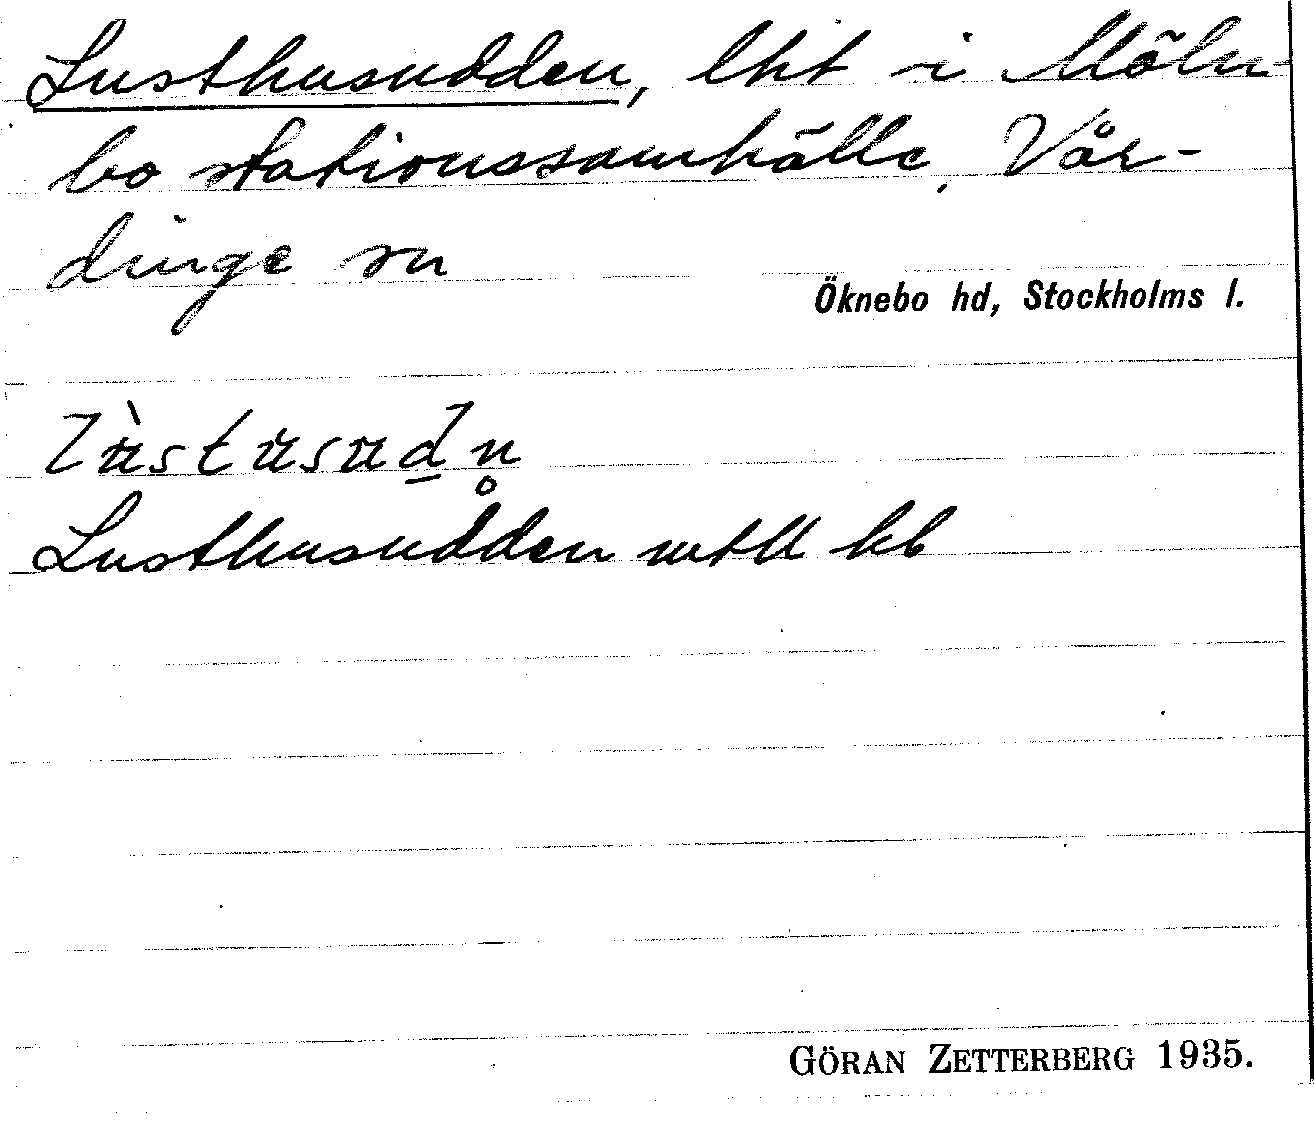 Lusthusudden, lht i Möln-
bo stationssamhälle, Vår-
dinge sn
Öknebo hd, Stockholms l.
Lusthusudden mtll kb
GÖRAN ZETTERBERG 1935.